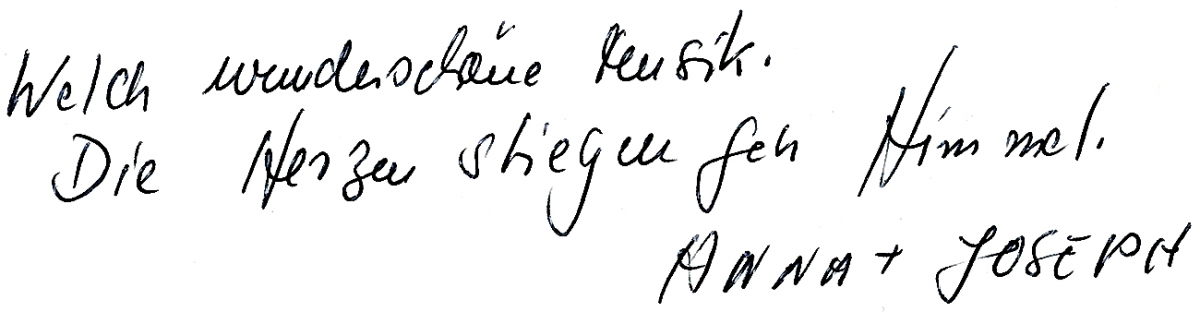 Welch wunderschöne Musik.
Die Herzen stiegen gen Himmel.
ANNA + JOSEPH